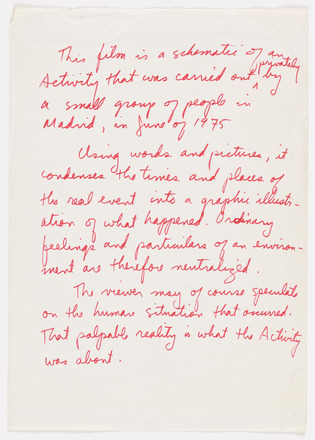 This film is a schematic of an
Activity that was carried out ^ privately by
a small group of people in
Madrid, in June of 1975
Using words and pictures, it
condenses the times and places of
the real event into a graphic illustr-
ation of what happened. Ordinary
feelings and particulars of an environ-
ment are therefore neutralized.
The viewer may of course speculate
on the human situation that occurred.
That palpable reality is what the Activity
was about.